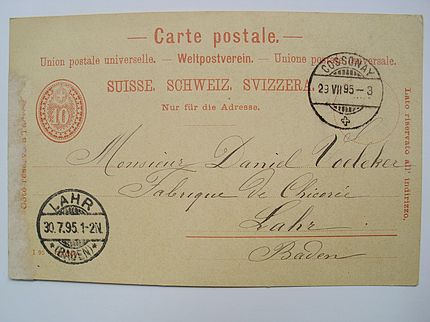 — Carte postale. —
Union postale universelle. — Weltpostverein. — Unione postale universale.
SUISSE. SCHWEIZ. SVIZZERA.
Nur für die Adresse.
10
COSSONAY
29 VII 95 - 3
Lato riservato all' indirizzo.
Monsieur Daniel Voelcker
Fabrique de Chicorée
Lahr
Baden
LAHR
30.7.95.1-2N.
* (BADEN) *